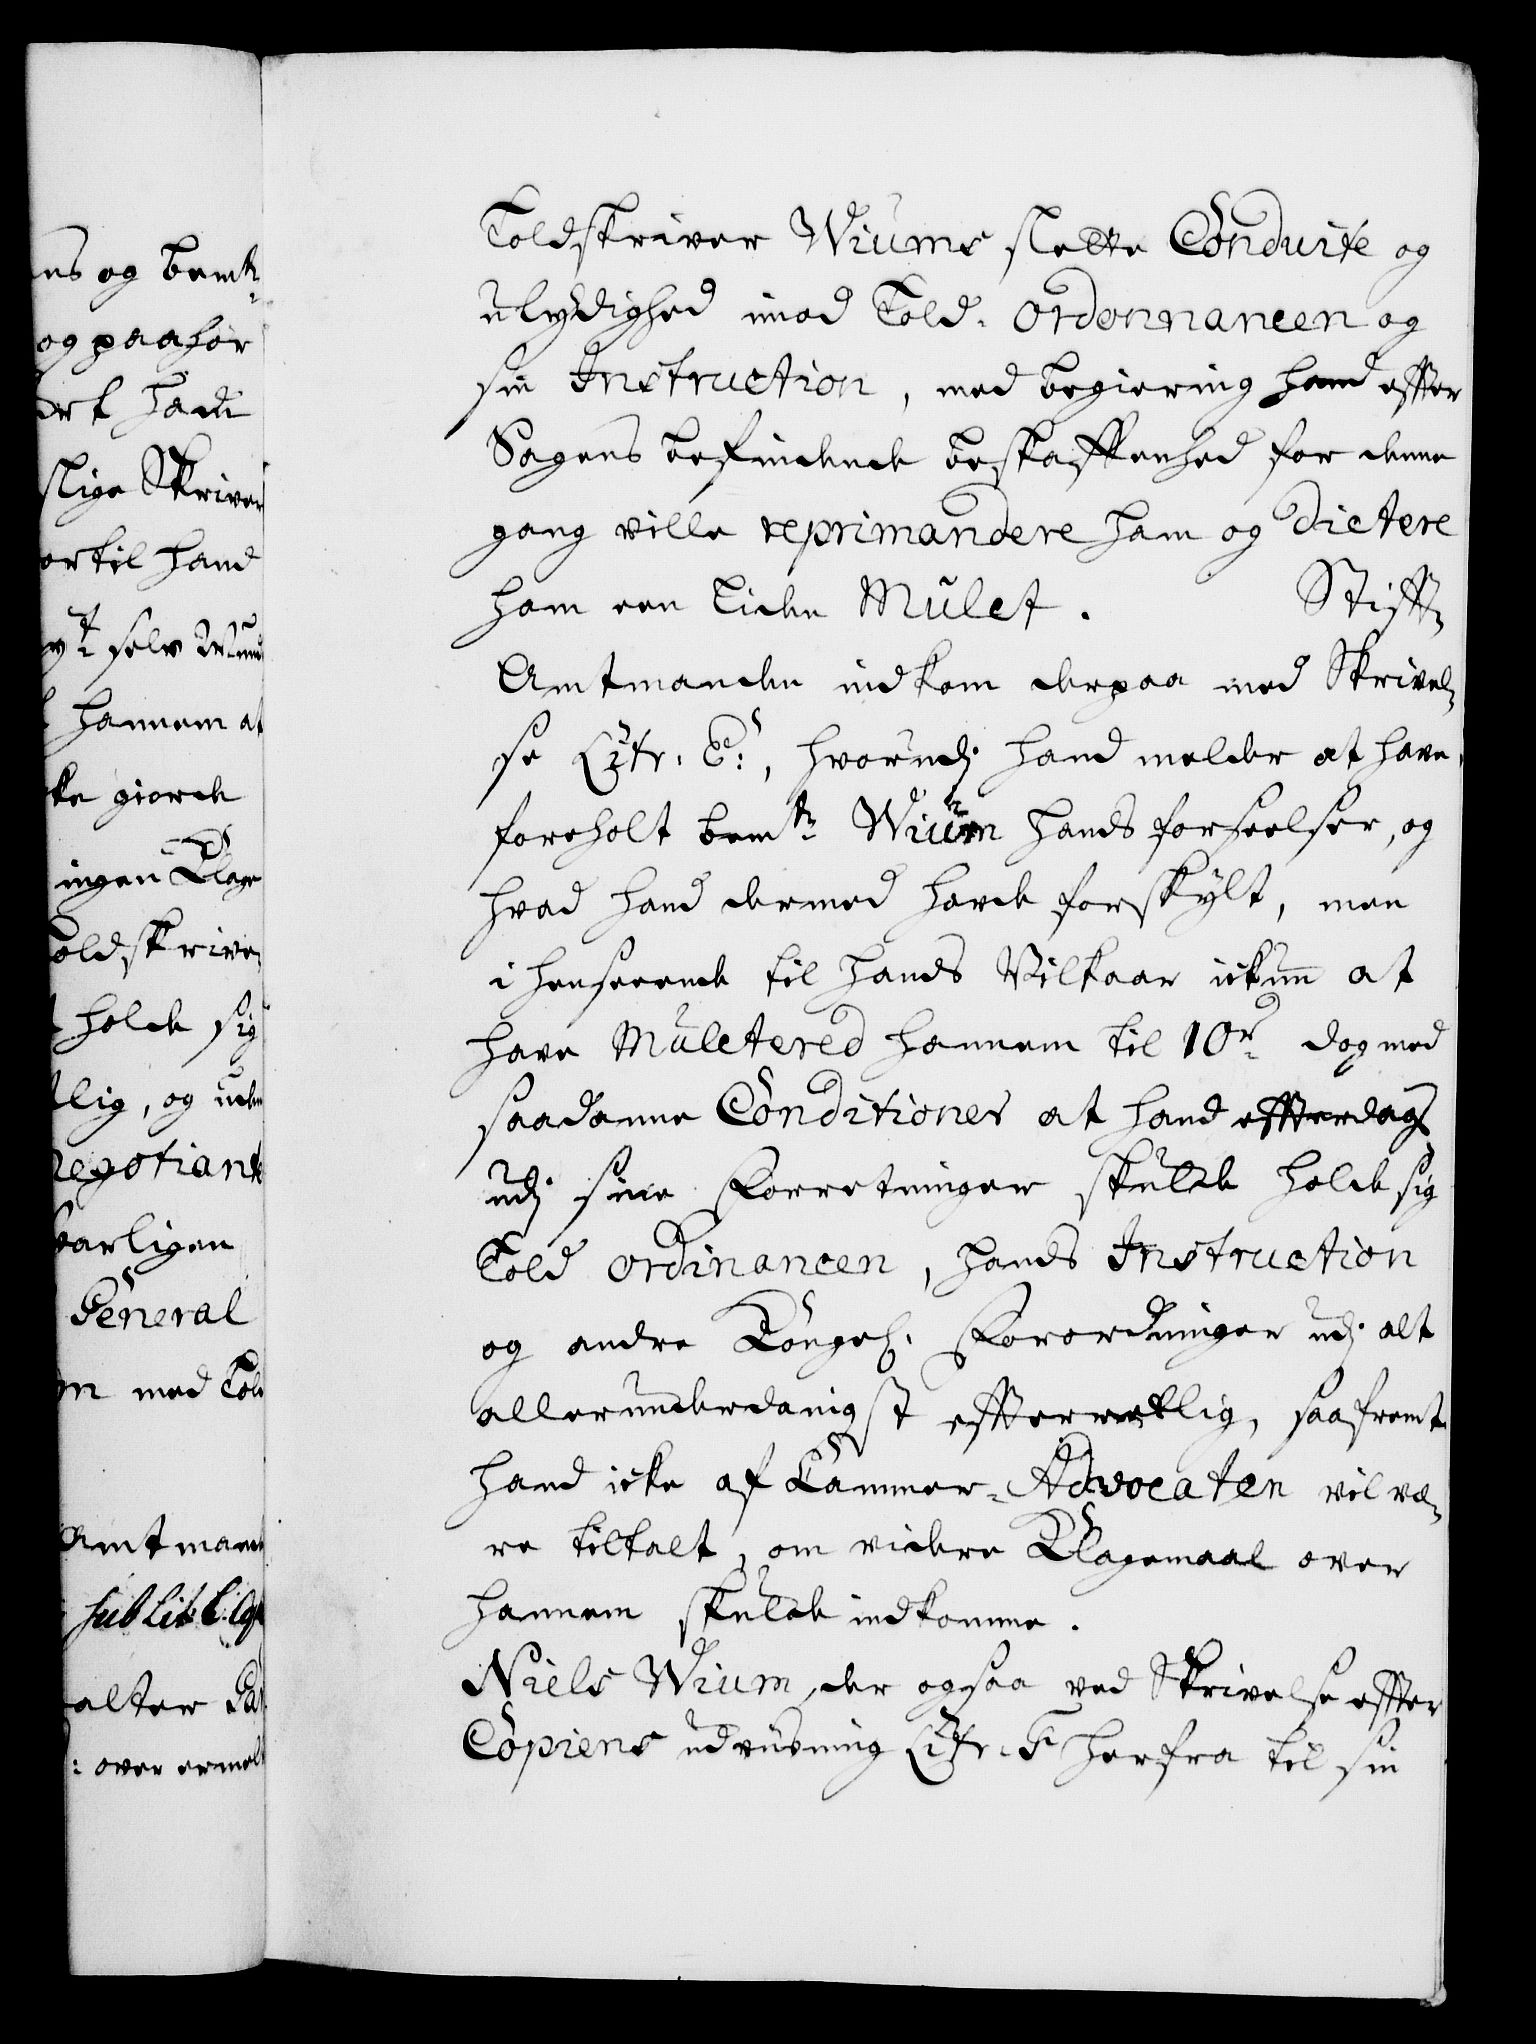 ens og bemte
og paahør
ort hadi
slige Skriver
ortil hand
hannem at
ke giorde
ingen Klage
oldskrive,
holde sig
lig, og uden
Negotiant
varligen
General
on med Told
Amtmand
sub Lit: C.
alter
: over ermelt
Toldskriver Wiums slette Conduite og
ulydighed imod Told. Ordonnancen og
sin Instruction, med begiering hand effter
Sagens befindende beskaffenhed for denne
gang ville reprimandere ham og dictere
ham een liden Mulct. Stifft,
Amtmanden indkom derpaa med Skrivel,
se Litr. E:, hvorudj hand melder at have
foreholt bemte Wium hands forseelser, og
hvad hand dermed havde forskylt, men
i henseende til hands Vilkaar ickun at
have Mulctered hannem til 10 r. dog med
saadanne Conditioner at hand effterdags
udj sine Forretninger skulde holde sig
Told Ordinancen, hands Instruction
og andre Kongel. Forordninger udj alt
allerunderdanigst effterrettlig, saafremt
hand icke af Cammer-Advocaten vil væ,
re tiltalt, om videre Klagemaal over
hannem skulde indkomme.
Niels Wium, der ogsaa ved Skrivelse effter
Copiens udviisning Litr. F herfra til sin